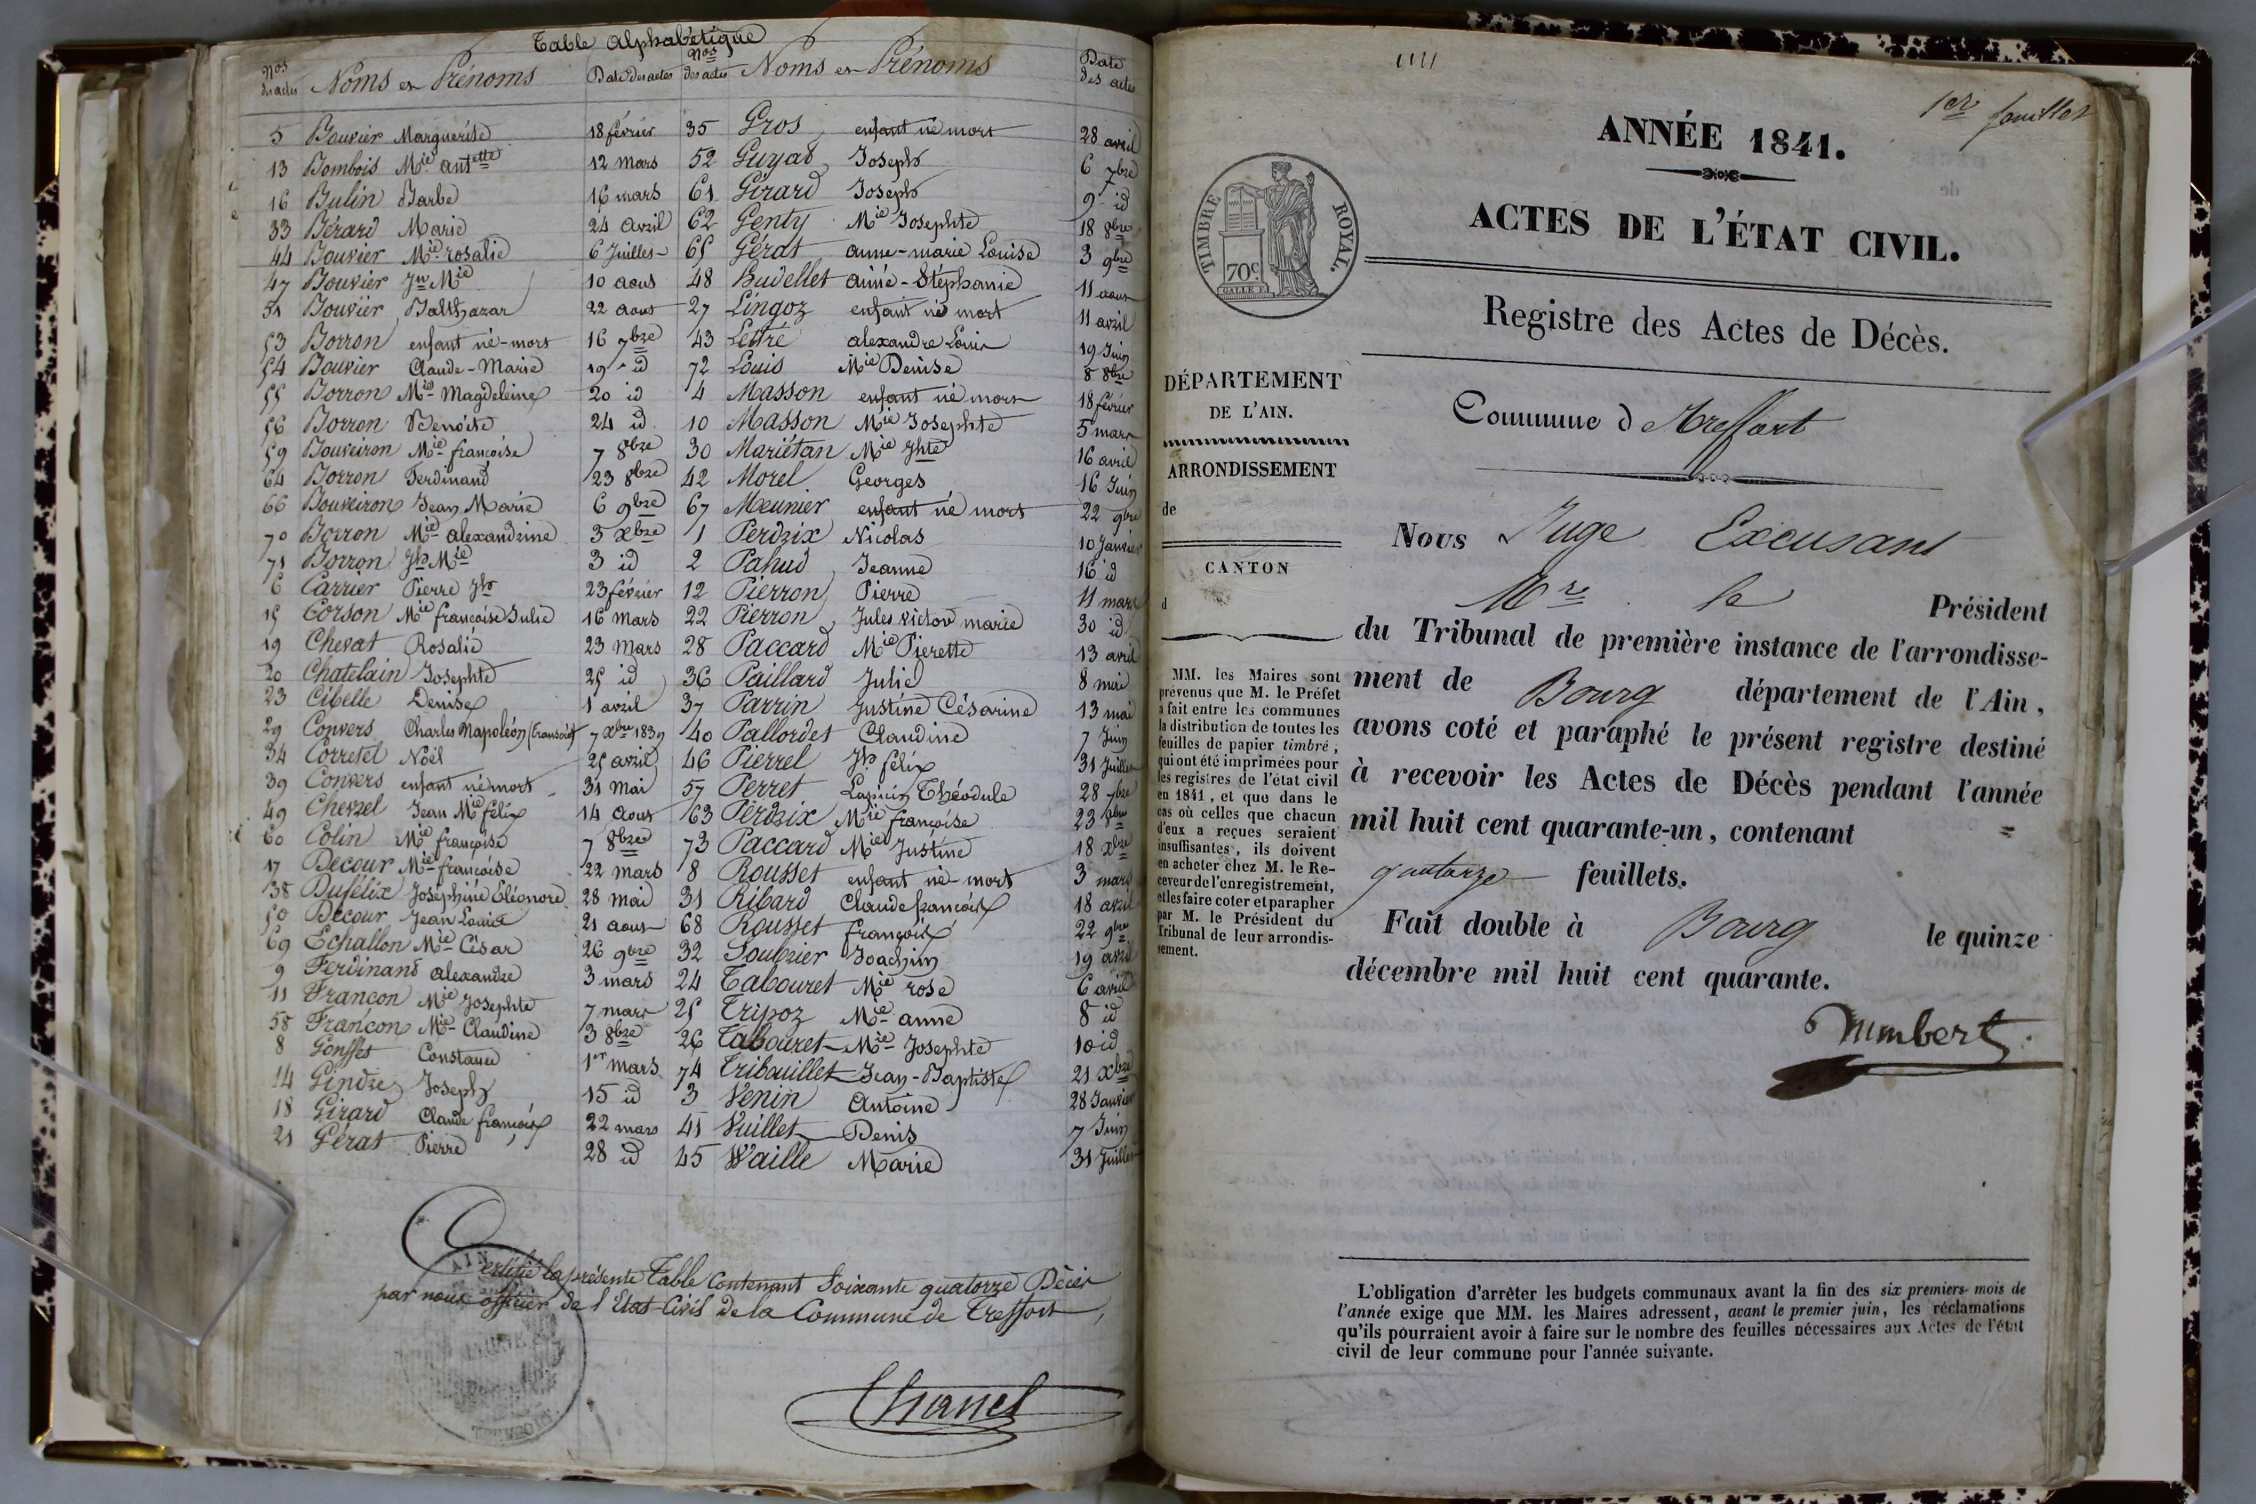 Table Alphabétique
Nos des actes Noms et Prénoms Date des actes
5 Bouvier Marguerite 18 février
13 Bombois Mie antette 12 mars
16 Bulin Barbe 16 mars
33 Bérard Marie 24 avril
44 Bouvier Mie rosalie 6 Juillet
47 Bouvier Jn Mie 10 aout
51 Bouvier Balthazar 22 aout
53 Borron enfant né-mort 16 7bre
54 Bouvier Claude-Marie 19 id
55 Borron Mie Magdeleine 20 id
56 Borron Benoite 24 id
59 Bouveiron Mie françoise 7 8bre
64 Borron Ferdinand 23 8bre
66 Bouveiron Jean Marie 6 9bre
70 Borron Mie alexandrine 3 Xbre
71 Borron Jh Mie 3 id
6 Carrier Pierre Jh 23 février
15 Corson Mie françoise Julie 16 mars
19 Chevat Rosalie 23 Mars
20 Chatelain Josephte 25 id
23 Cibelle Denise 1 avril
29 Convers Charles Napoléon (transcrit) 7 Xbre 1839
34 Corretel Noël 25 avril
39 Convers enfant né mort 31 Mai
49 Chevrel Jean Mie félix 14 Aout
60 Colin Mie françoise 7 8bre
17 Decour Mie françoise 22 mars
38 Dufélix Joséphine Eléonore 28 mai
50 Decour Jean Louis 21 aout
69 Echallon Mie César 26 9bre
9 Ferdinand alexandre 3 mars
11 Françon Mie Josephte 7 mars
58 Françon Mie Claudine 3 8bre
8 Constance 1er mars
14 Gindre Joseph 15 id
18 Girard Claude françois 22 mars
21 Gérat Pierre 28 id
Nos des actes Noms et Prénoms Date des actes
35 Gros enfant né mort 28 avril
52 Guyad Joseph 6 7bre
61 Girard Joseph 9 id
62 Genty Mie Josephte 18 8bre
65 Gérat anne-marie Louise 3 9bre
48 Hudellet aimé-Stéphanie 11 aout
27 Lingoz enfant né mort 11 avril
43 Lettré alexandre Louis 19 Juin
72 Louis Mie Denise 8 8bre
4 Masson enfant né mort 18 février
10 Masson Mie Josephte 5 mars
30 Mariétan Mie Jhte 16 avril
42 Morel Georges 16 Juin
67 Meunier enfant né mort 22 9bre
1 Perdrix Nicolas 10 Janvier
2 Pahud Jeanne 16 id
12 Pierron Pierre 11 mars
22 Pierron Jules victor marie 30 id
28 Paccard Mie Pierette 13 avril
36 Paillard Julie 8 mai
37 Parrin Justine Césarine 13 mai
40 Pallordet Claudine 7 Juin
46 Pierrel Jh félix 31 Juillet
57 Perret Théodule 28 7bre
63 Perdrix Mie françoise 23 8bre
73 Paccard Mie Justine 18 Xbre
8 Rousset enfant né mort 3 mars
31 Ribard Claude françois 18 avril
68 Rousset françois 22 9bre
32 Soubrier Joachim 19 avril
24 Tabouret Mie rose 6 avril
25 Tripoz Mie anne 8 id
26 Tabouret Mie Josephte 10 id
74 Tribouillet Jean-Baptiste 21 Xbre
3 Venin Antoine 28 Janvier
41 Vuillet Denis 7 Juin
45 Vaille Marie 31 Juillet
Certifié la présente Table contenant Soixante quatorze Décès
par nous officier de l'Etat Civil de la Commune de Treffort
Chanel
1er feuillet
ANNÉE 1841.
TIMBRE ROYAL.
70c
ACTES DE L'ÉTAT CIVIL.
Registre des Actes de Décès.
DÉPARTEMENT
DE L'AIN.
ARRONDISSEMENT
de
CANTON
d
MM. les Maires sont
prévenus que M. le Préfet
a fait entre les communes
la distribution de toutes les
feuilles de papier timbré,
qui ont été imprimées pour
les registres de l'état civil
en 1841, et que dans le
cas où celles que chacun
d'eux a reçues seraient
insuffisantes, ils doivent
en acheter chez M. le Re-
ceveur de l'enregistrement,
et les faire coter et parapher
par M. le Président du
Tribunal de leur arrondis-
sement.
Commune d Treffort
Nous Juge Excusant
Mr le Président
du Tribunal de première instance de l'arrondisse-
ment de Bourg département de l'Ain,
avons coté et paraphé le présent registre destiné
à recevoir les Actes de Décès pendant l'année
mil huit cent quarante-un, contenant
quatorze feuillets.
Fait double à Bourg le quinze
décembre mil huit cent quarante.
L'obligation d'arrêter les budgets communaux avant la fin des six premiers mois de
l'année exige que MM. les Maires adressent, avant le premier juin, les réclamations
qu'ils pourraient avoir à faire sur le nombre des feuilles nécessaires aux Actes de l'état
civil de leur commune pour l'année suivante.